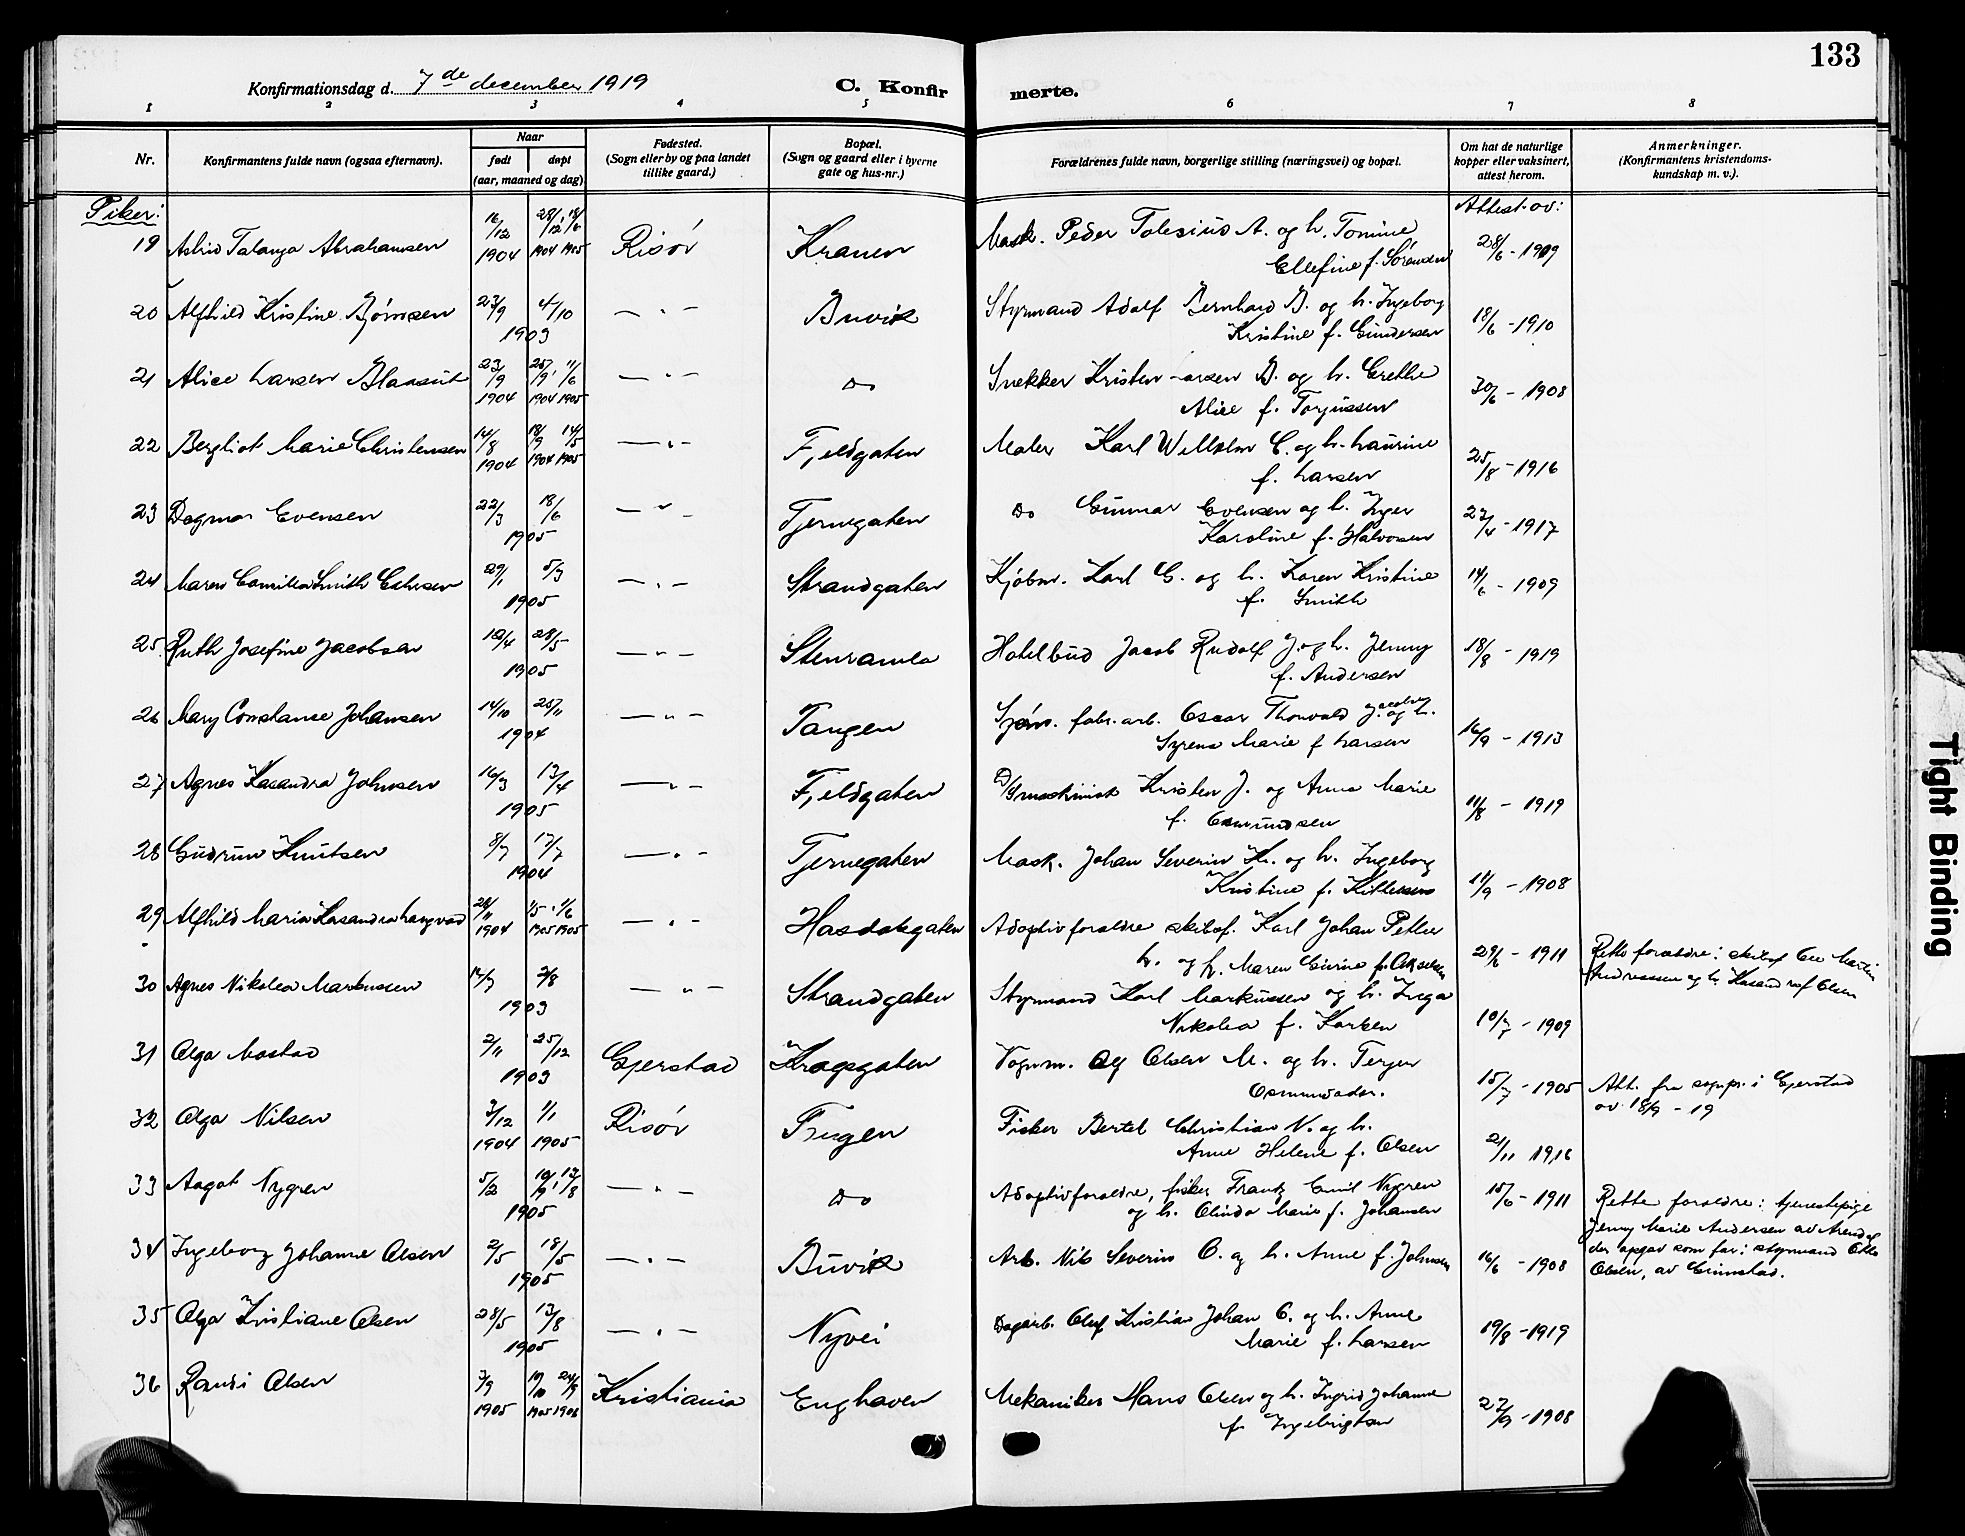 133
Konfirmationsdag d. 7de december 1919
C. Konfirmerte.
1 2 3 4 5 6 7 8
Nr.
Konfirmantens fulde navn (ogsaa efternavn).
Naar
født døpt
(aar, maaned og dag)
Fødested.
(Sogn eller by og paa landet
tillike gaard.)
Bopæl.
(Sogn og gaard eller i byerne
gate og hus-nr.)
Forældrenes fulde navn, borgerlige stilling (næringsvei) og bopæl.
Om hat de naturlige
kopper eller vaksinert,
attest herom.
Anmerkninger.
(Konfirmantens kristendoms-
kundskap m. v.).
Piker:
Attest. av:
19 Astrid Abrahamsen 16/12 1904 28/12 1904 18/6 1905 Risör Kranen Mask. Peder Tolesius A. og h. Tomine
Ellefine f. Sörensen 28/6 - 1909
20 Alfhild Kristine Bjørnsen 23/9 4/10 1903 — " — Buvik Styrmand Adolf Bernhard B. og h. Ingeborg
Kristine f. Gundersen 18/6 - 1910
21 Alice Larsen Blaasut 23/9 1904 25/9 1904 11/6 1905 — " — Do Snekker Kristen Larsen B. og h. Grethe
Alice f. Torjussen 30/6 - 1908
22 Bergliot Marie Christensen 14/8 1904 18/9 1904 14/5 1905 — " — Fjeldgaten Maler Karl Wilhelm C. og h. Laurine
f. Larsen 25/8 - 1916
23 Dagmar Evensen 22/3 18/6 1905 — " — Tjernegaten Do Gunnar Evensen og h. Inger
Karoline f. Halvorsen 27/4 - 1917
24 Maren Camilla Smith 29/1 5/3 1905 — " — Strandgaten Kjøbm. Karl G. og h. Karen Kristine
f. Smith 14/6 - 1909
25 Ruth Josefine Jacobsen 12/4 28/5 1905 — " — Stenramla Hotelbud Jacob Rudolf J. og h. Jenny
f. Andersen 18/8 - 1919
26 Mary Constance Johansen 14/10 25/11 1904 — " — Tangen fabr. arb. Oscar Thorvald J. og h.
Syrena Marie f Larsen 16/9 - 1913
27 Agnes Kasandra Johnsen 16/3 13/4 1905 — " — Fjeldgaten Kristen J. og Anna Marie
f. Osmundsen 11/8 - 1919
28 Gudrun Knutsen 8/7 17/7 1904 — " — Tjernegaten Mask. Johan Severin K. og h. Ingeborg
Kristine f. Kittelsen 14/9 - 1908
29 Alfhild Maria Kasandra Langvad 28/11 1904 1/5 1905 1/6 1905 — " — Hasdalsgaten Adoptivforældre skibsf. Karl Johan Petter
L. og h. Maren f. Akselsen 29/6 - 1911 Rette forældre: skibsf Ole Martin
Andreassen og h. Kasandra f Olsen
30 Agnes Nikolea Markussen 12/7 2/8 1903 — " — Strandgaten Styrmand Karl Markussen og h. Inga
Nikolea f. Karlsen 10/7 - 1909
31 Olga Mostad 2/11 25/12 1903 Gjerstad Kragsgaten Vognm. Olsen M. og h. Terjer
Osmundsdtr. 15/7 - 1905 Att. fra sognpr. i Gjerstad
av 18/9 - 19
32 Olga Nilsen 3/12 1904 1/1 1905 Risör Tangen Fisker Bertel Christian N. og h.
Anne Helene f. Olsen 21/11 1916
33 Aagot Nygren 5/2 10/9 13/8 1905 — " — Do Adoptivforældre, fisker Frantz Emil Nygren
og h. Olinda Marie f. Johansen 15/6 - 1911 Rette forældre: tjenestepige
Jenny Marie Andersen av Arendal
der opgav som far: styrmand Otto
Olsen, av Grimstad.
34 Ingeborg Johanne Olsen 2/5 18/5 1905 — " — Buvik Arb. Nils Severin O. og h. Anne f. Johnsen 16/6 - 1908
35 Olga Kristiane Olsen 28/5 13/8 1905 — " — Nyvei Dagarb. Oluf Kristian Johan O. og h. Anne
Marie f. Larsen 19/8 - 1919
36 Randi Olsen 3/9 1905 19/10 1905 24/9 1908 Kristiania Enghaven Mekaniker Hans Olsen og h. Ingrid Johanne
f. Ingebrigtsen 27/9 - 1908
Tight Binding